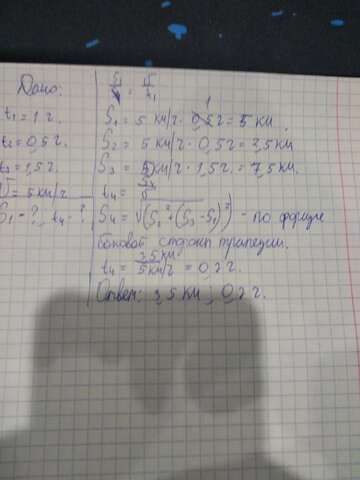 Дано:
t₁ = 1 г.
t₂ = 0,5 г.
t₃ = 1,5 г.
V = 5 км/г
S₁ - ? t₄ - ?
S₁ = 5 км/г · 1 = 5 км.
S₂ = 5 км/г · 0,5 г = 3,5 км
S₃ = 5 км/г · 1,5 г. = 7,5 км.
t₄ = S₄/V
S₄ = √(S₂² + (S₃ - S₁)²) - по форму
боковой стороны трапеции.
t₄ = 3,5 км/5 км/г = 0,7 г.
Ответ: 3,5 км; 0,7 г.